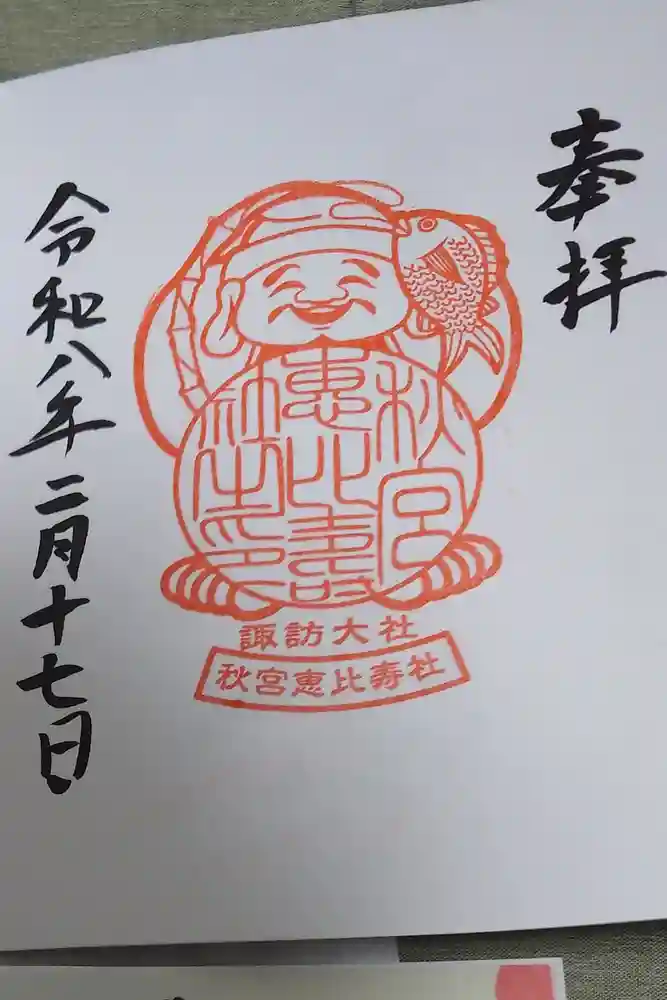 奉拝
秋宮
恵比寿
社之印
諏訪大社
秋宮恵比寿社
令和八年二月十七日